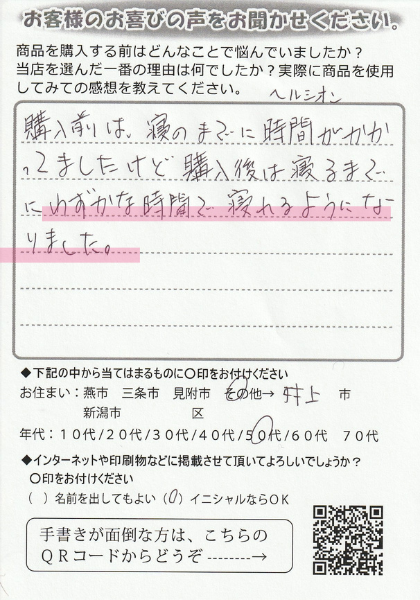 お客様のお喜びの声をお聞かせください。
商品を購入する前はどんなことで悩んでいましたか？
当店を選んだ一番の理由は何でしたか？実際に商品を使用
してみての感想を教えてください。
ヘルシオン
購入前は、寝のまでに時間がかか
ってましたけど購入後は寝るまで
にわずかな時間で寝れるようにな
りました。
◆下記の中から当てはまるものに〇印をお付けください
お住まい：燕市 三条市 見附市 その他→ 村上 市
新潟市 区
年代：１０代/２０代/３０代/４０代/５０代/６０代 ７０代
◆インターネットや印刷物などに掲載させて頂いてよろしいでしょうか？
〇印をお付けください
（ ）名前を出してもよい（〇）イニシャルならＯＫ
手書きが面倒な方は、こちらの
ＱＲコードからどうぞ--------→